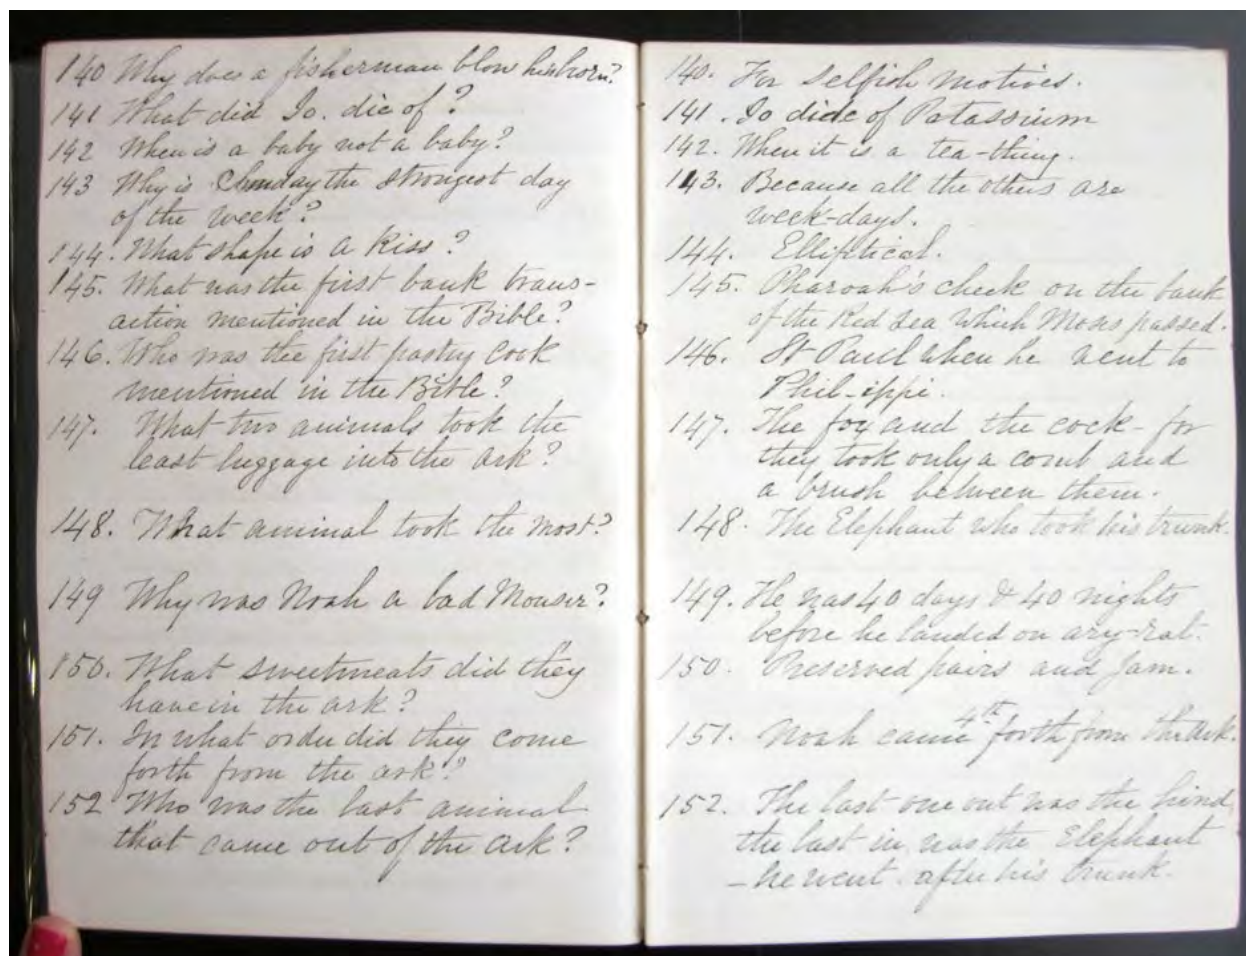 140 Why does a fisherman blow his horn?
141 What did Io. die of?
142 When is a baby not a baby?
143 Why is Sunday the strongest day
of the week?
144. What shape is a Kiss?
145. What was the first bank trans-
action mentioned in the Bible?
146. Who was the first pastry cook
mentioned in the Bible?
147. What two animals took the
least luggage into the ark?
148. What animal took the most?
149 Why was Noah a bad Mouser?
150. What sweetmeats did they
have in the ark?
151. In what order did they come
forth from the ark?
152 Who was the last animal
that came out of the ark?
140. For Selfish motives.
141. Io dide of Potassium
142. When it is a tea-thing.
143. Because all the others are
week-days.
144. Elliptical.
145. Pharoah's check on the bank
of the Red Sea which Moses passed.
146. St Paul when he went to
Phil-ippi.
147. The fox and the cock - for
they took only a comb and
a brush between them.
148. The Elephant who took his trunk.
149. He was 40 days & 40 nights
before he landed on ary-rat.
150. Preserved pairs and Jam.
151. Noah came 4th forth from the Ark.
152. The last one out was the hind
the last in, was the Elephant
- he went after his trunk.